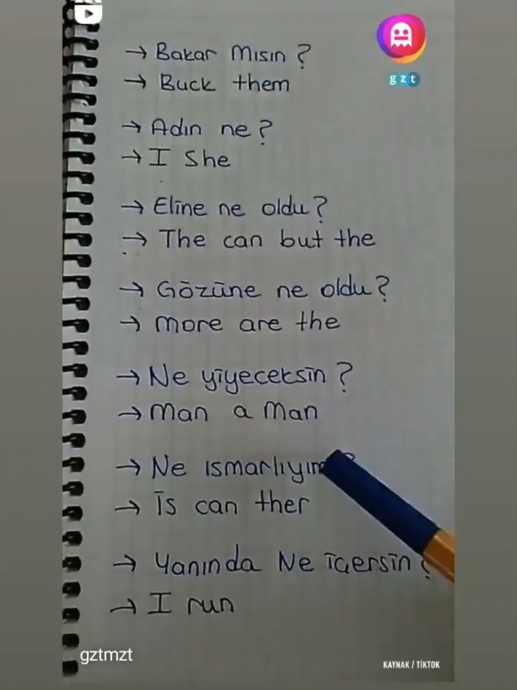 gzt
→ Bakar mısın?
→ Buck them
→ Adın ne?
→ I She
→ Eline ne oldu?
→ The can but the
→ Gözüne ne oldu?
→ more are the
→ Ne yiyeceksin?
→ Man a Man
→ Ne ısmarlıyım?
→ İs can ther
→ Yanında Ne içersin?
→ I run
gztmzt
KAYNAK / TİKTOK